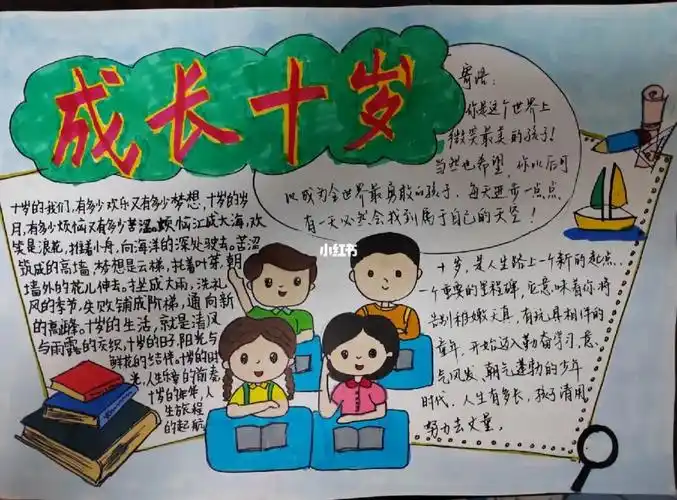 成长十岁
寄语:
你是这个世界上
微笑最美的孩子!
当然也希望,你以后可
以成为全世界最勇敢的孩子,每天进步一点点,
有一天必然会找到属于自己的天空!
十岁的我们,有多少欢乐又有多少梦想,十岁的岁
月,有多少烦恼又有多少苦涩。烦恼汇成大海,欢
笑是浪花,推着小舟,向海洋的深处驶去。苦涩
筑成的高墙,梦想是云梯,托着叶芽,朝
墙外的花儿伸去。挫
折
成大雨,洗礼
风的季节,失败铺成阶梯,通向新
的
十岁的生活,就是清风
与雨露的交织,十岁的日子,阳光与
鲜花的结伴,十岁的时
光,人生乐章的前奏,
十岁的年华,人
生旅程
的起航
十岁,是人生路上一个新的起点,
一个重要的里程碑,它意味着你将
告别稚嫩天真,有玩具相伴的
童年,开始迈入勤奋学习、意
气风发、朝气蓬勃的少年
时代,人生有多长,孩子请用
努力去丈量。
小红书